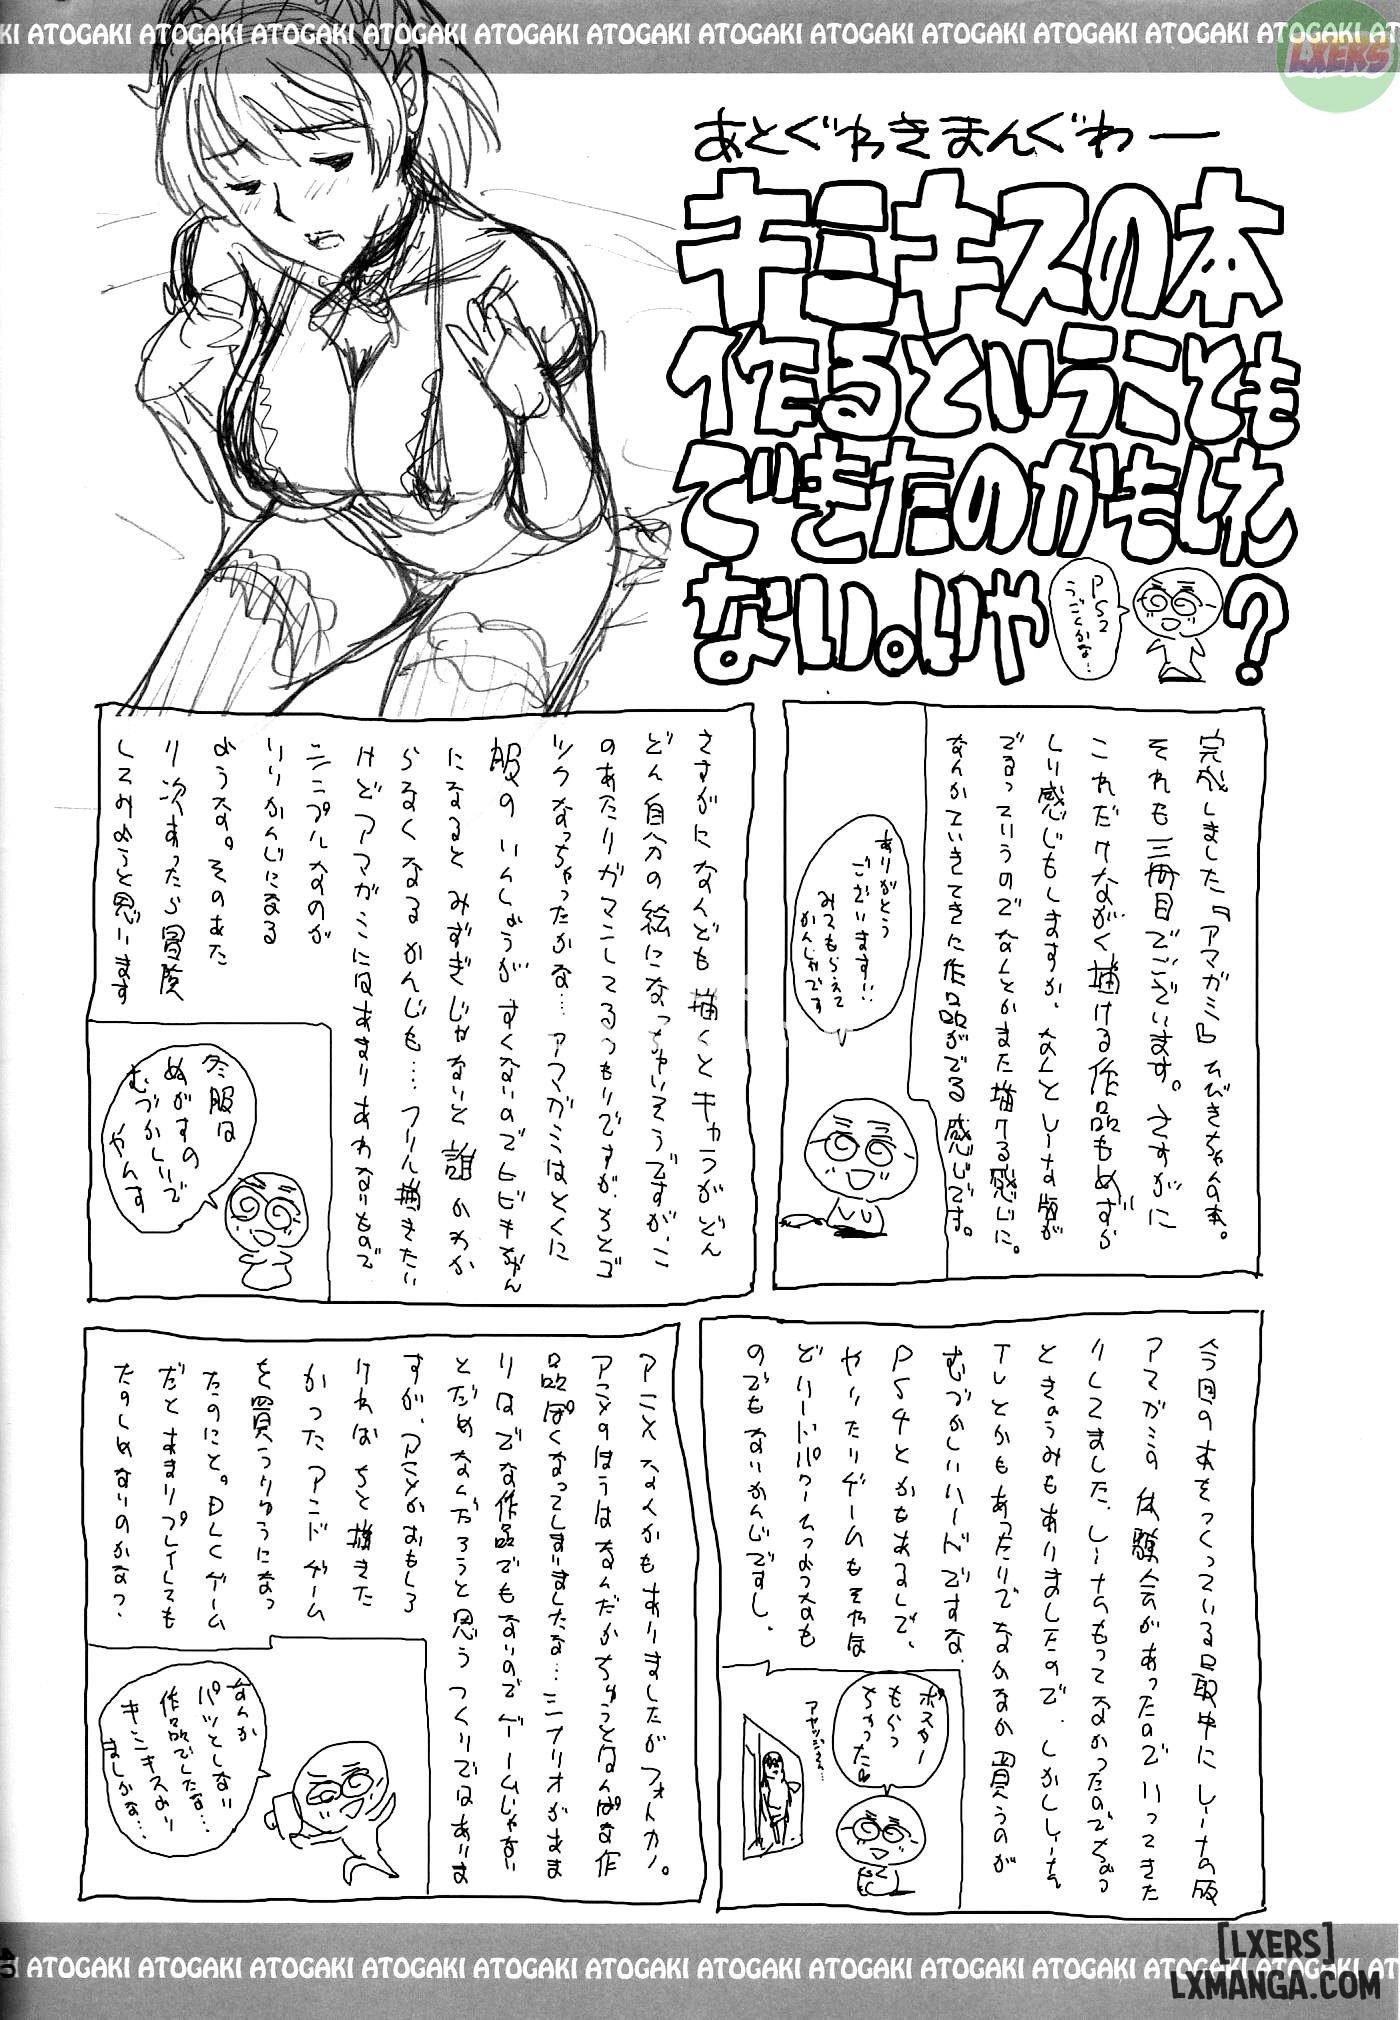 KI ATOGAKI ATOGAKI ATOGAKI ATOGAKI ATOGAKI ATOGAKI ATOGAKI ATOGAKI ATOGAKI ATOGAKI ATOGAKI ATOGAKI AT
LXERS
あとぐゎきまんぐわー
キミキスの本
作るということも
できたのかもしれ
ない。いや
PS2
うごくかな…
?
完成しました『アマガミ』ひびきちゃん本。
それも三冊目でございます。さすがに
これだけながく描ける作品もめずら
しい感じもしますが、なんとレーナの版が
でるっていうのでなんとかまた描ける感じに。
なんかていきてきに作品がでる感じです。
ありがとう
ございます!!
みてもらえて
かんしゃです
さすがになんども描くとキャラがどん
どん自分の絵になっちゃいそうですが、こ
のあたりガマンしてるつもりですが、ちとゴ
ツクなっちゃったかな…アマガミはとくに
服のいんしょうがすくないのでヒビキちゃん
になるとみずぎじゃないと誰かわか
らなくなるかんじも…フリル描きたい
けどアマガミにはあまりあわないもので
シンプルなのが
いいかんじになる
ような。そのあた
り次あったら冒険
してみようと思います
冬服は
ぬがすの
むづかしいで
やんす
今回の本をつくっている最中にレーナの版
アマガミの体験会があったのでいってきた
りしてました。レーナのもってなかったのでちょっ
ときょうみもありましたので。しかしレーナ
TVとかもあったりでなかなか買うのが
むづかしいハードですな
PS4とかもあるしで、
やりたりゲームもそれほ
どハードパワーつよつなも
のでもないかんじですし。
ポスター
もらっ
ちゃった
アヤッジさん…
アニメなんかもありましたがフォトカノ。
アニメのほうはなんだかちゅうとはんぱな作
品ぽくなってしまいましたな…シナリオがあま
りはでな作品でもないのでゲームじゃない
とだめなんだろうと思うつくりではありま
すが、アニメがおもしろ
ければちと描きた
かったアンドゲーム
を買うりゆうになっ
たのにと。DLCゲーム
だとあまりプレイしても
たのしめないのかなっ、
なんか
パッとしない
作品でしたな…
キミキスより
ましかな…
40
KI ATOGAKI ATOGAKI ATOGAKI ATOGAKI ATOGAKI ATOGAKI ATOGAKI ATOGAKI ATOGAKI ATOGAKI ATOGAKI ATOGAKI AT
[LXERS]
LXMANGA.COM